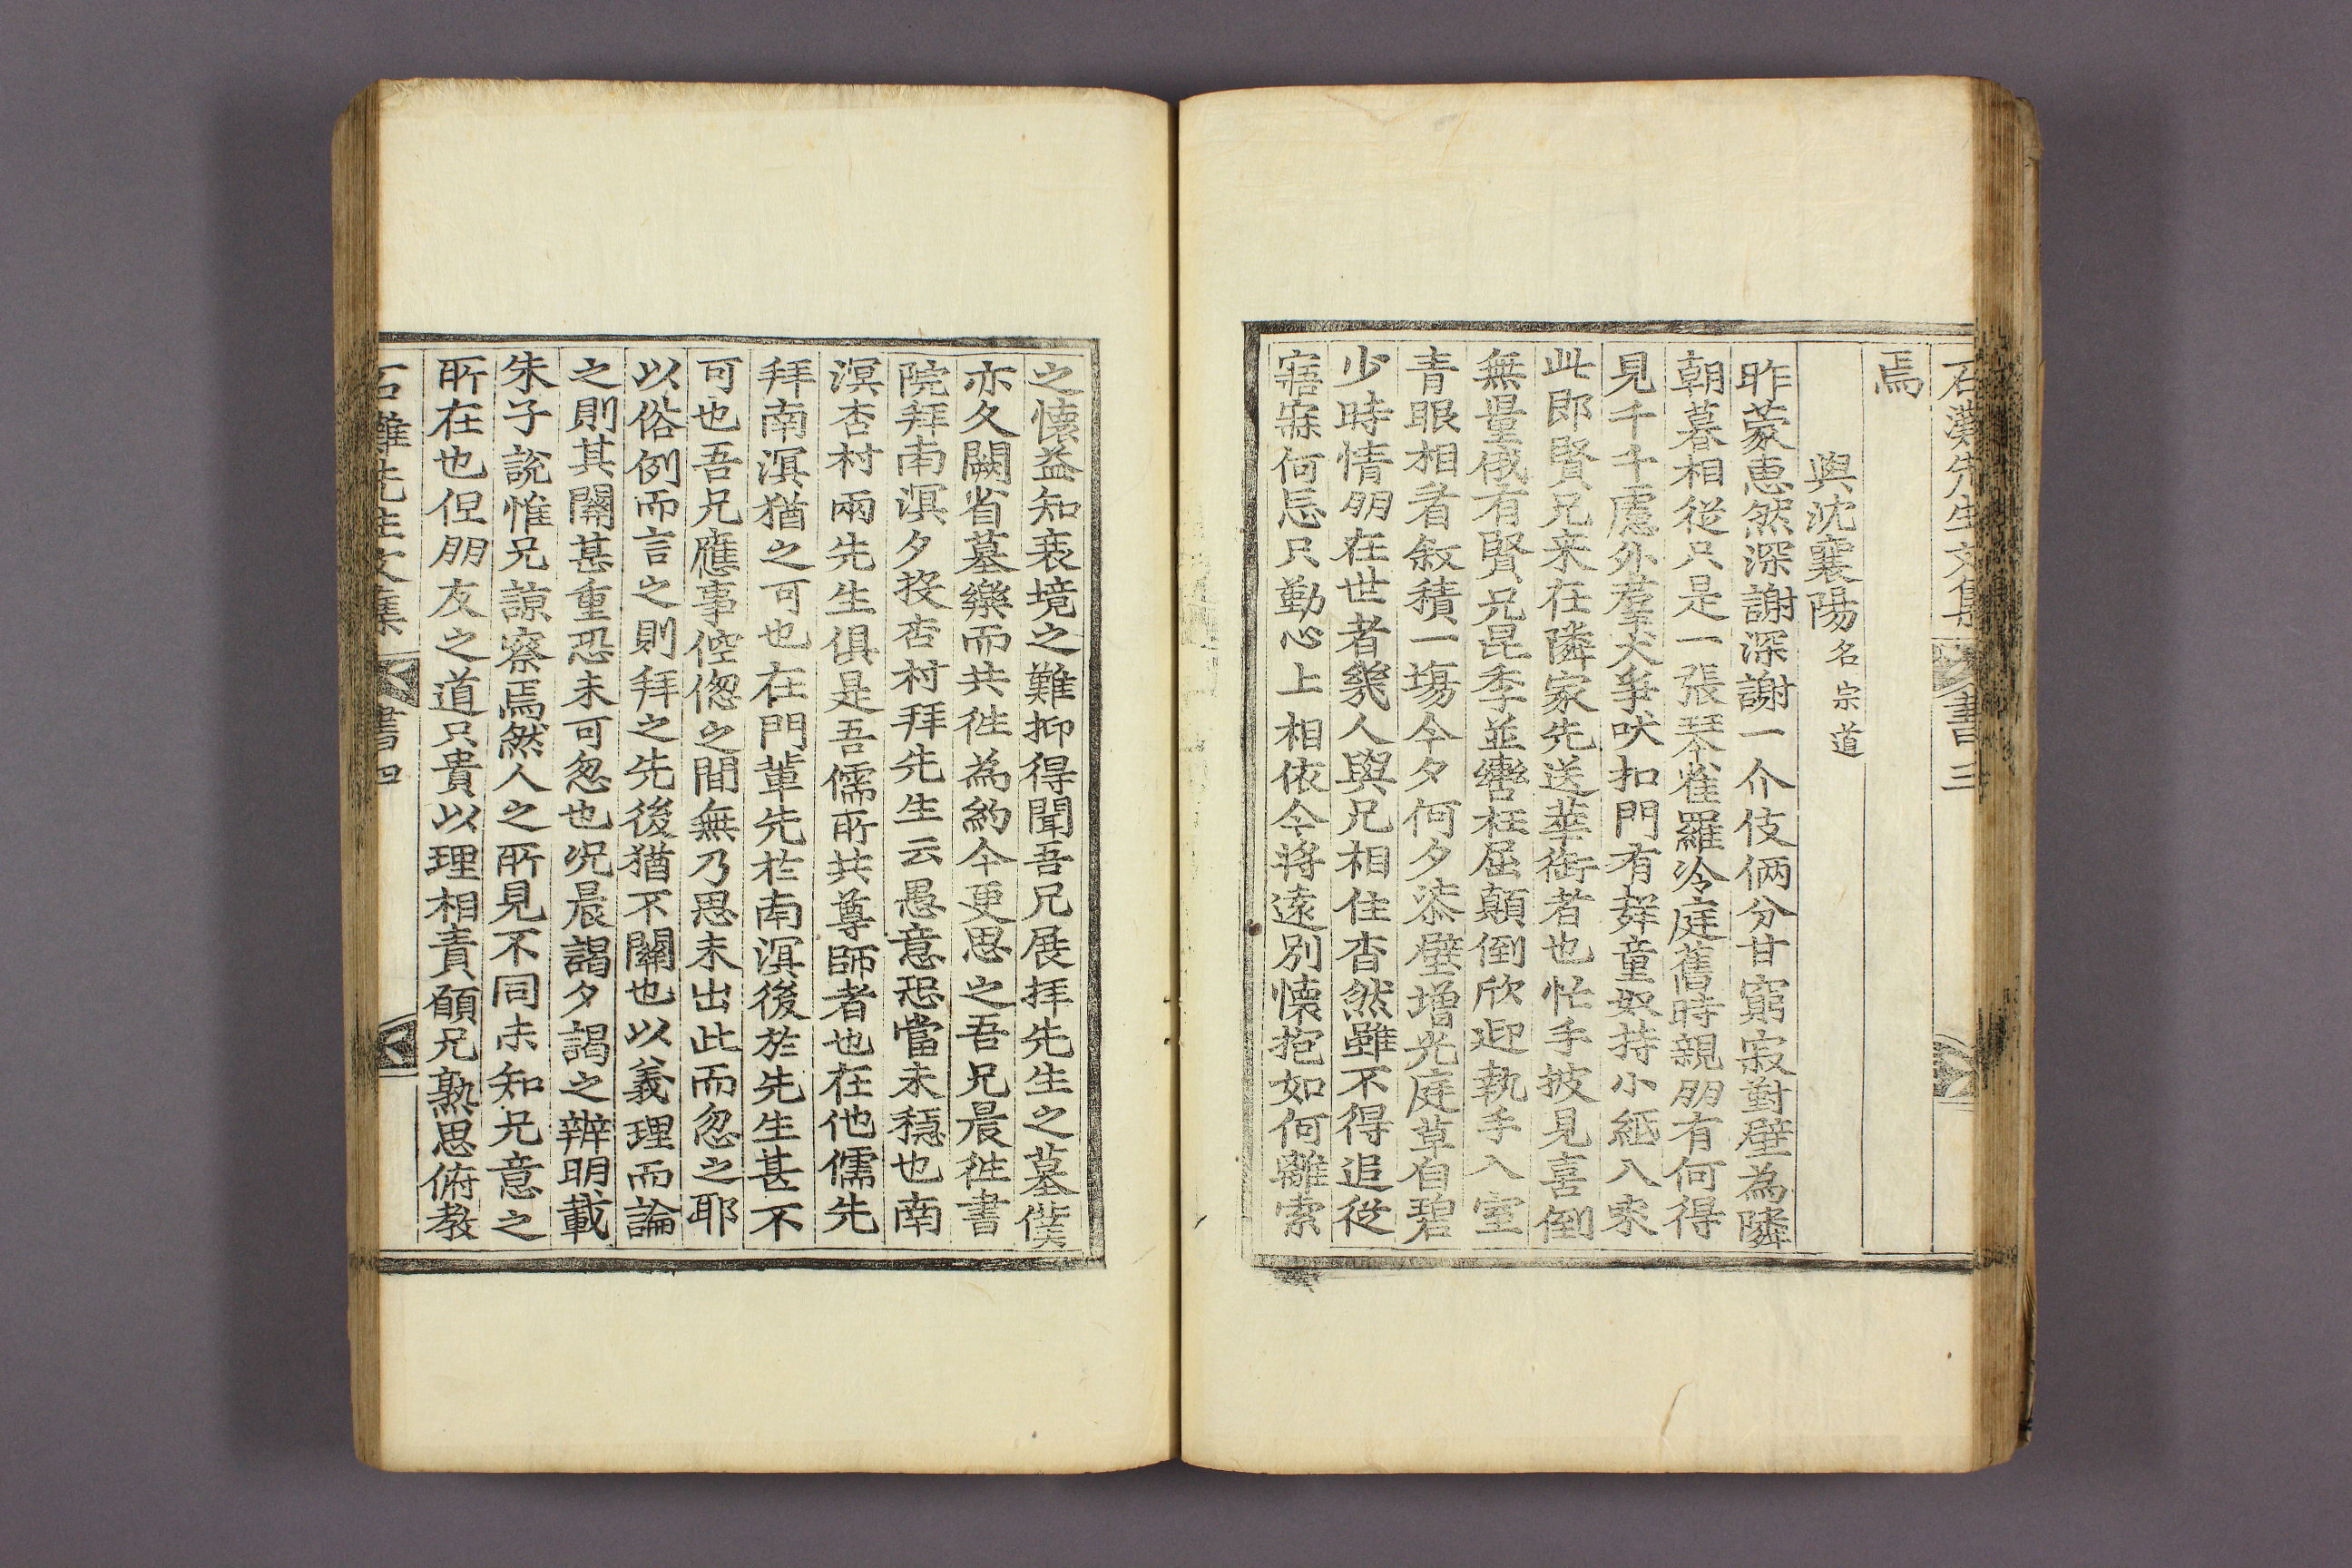 石灘先生文集 書 三
焉
與沈襄陽名宗道
昨蒙惠然深謝深謝一介伎倆分甘窮寂對壁為隣
朝暮相從只是一張琴雀羅冷庭舊時親朋有何得
見千千慮外羣犬爭吠扣門有鮮童奴持小紙入來
此即賢兄来在隣家先送華衘者也忙手披見喜倒
無量俄有賢兄昆季並轡枉屈顛倒欣迎執手入室
青眼相看叙積一塲今夕何夕漆壁增光庭草自碧
少時情朋在世者幾人與兄相住杳然雖不得追從
寤寐何忘只勤心上相依今将遠別懷抱如何離索
之懷益知衰境之難抑得聞吾兄展拝先生之墓僕
亦久闕省墓樂而共徃為約今更思之吾兄晨徃書
院拜南溟夕投杏村拜先生云愚意恐當未穏也南
溟杏村兩先生俱是吾儒所共尊師者也在他儒先
拜南溟猶之可也在門軰先於南溟後於先生甚不
可也吾兄應事倥偬之間無乃思未出此而忽之耶
以俗例而言之則拜之先後猶不關也以義理而論
之則其關甚重恐未可忽也况晨謁夕謁之辨明載
朱子說惟兄諒察焉然人之所見不同未知兄意之
所在也但朋友之道只貴以理相責願兄熟思俯教
石灘先生文集 書 四